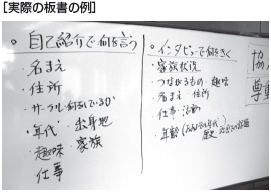 [実際の板書の例]
。自己紹介で何を言う
・名まえ
・住所
・サークル何をしているか
・年代・出身地
・趣味・家族
仕事
。インタビューで何をきく
・家族状況
・つながるもの・趣味
・名まえ・住所
・仕事・活動
・年齢
協
尊重